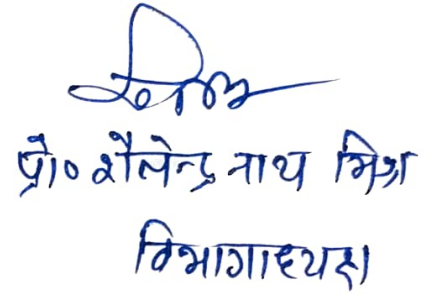 प्रो० शैलेन्द्र नाथ मिश्र
विभागाध्यक्ष